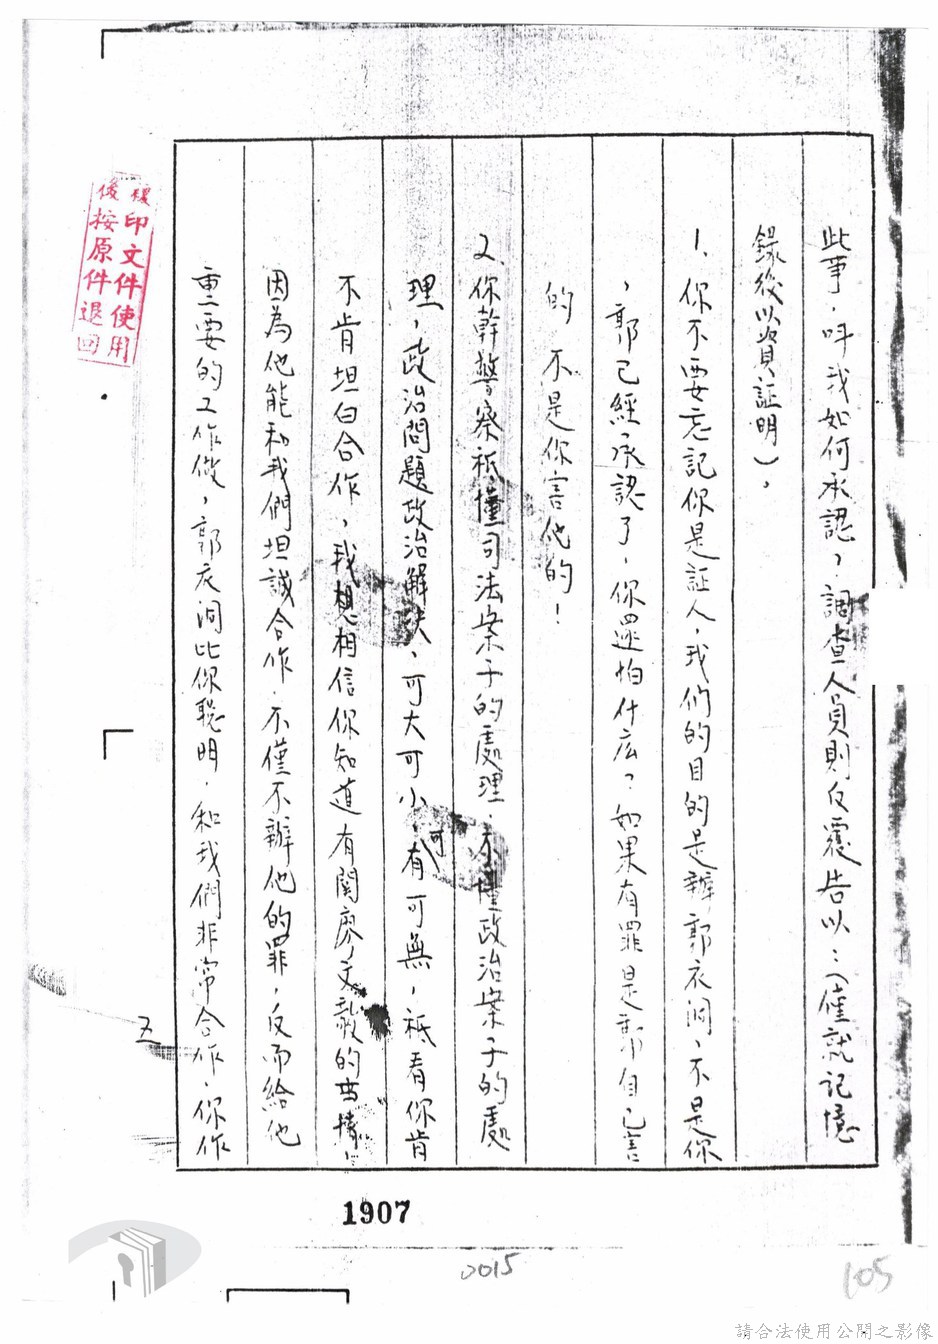 此事，叫我如何承認，調查人員則反覆告以：（僅就記憶
錄後以資証明），
1、你不要忘記你是証人，我们的目的是辦郭衣洞，不是你
，郭已經承認了，你还怕什広？如果有罪是郭自己害
的 不是你害他的！
2、你幹警察祗懂司法案子的處理，不懂政治案子的處
理，政治問題政治解决，可大可小，可有可無，祗看你肯
不肯坦白合作，我想相信你知道有關廖文毅的
因為他能和我們坦誠合作，不僅不辦他的罪，反而給他
重要的工作做，郭衣洞比你聪明，和我們非常合作，你作
五
複印文件使用
後按原件退回
1907
0015
105
請合法使用公開之影像